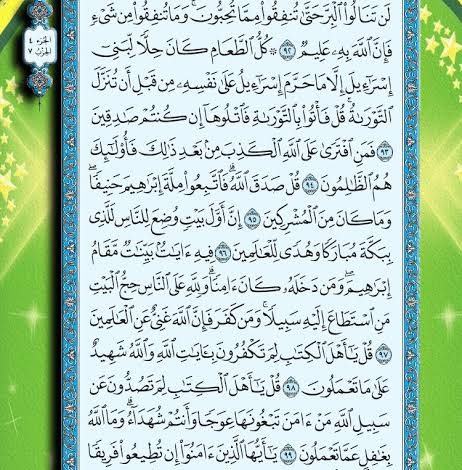 لَن تَنَالُوا۟ ٱلْبِرَّ حَتَّىٰ تُنفِقُوا۟ مِمَّا تُحِبُّونَ ۚ وَمَا تُنفِقُوا۟ مِن شَىْءٍ
فَإِنَّ ٱللَّهَ بِهِۦ عَلِيمٌ ٩٢ ۞ كُلُّ ٱلطَّعَامِ كَانَ حِلًّا لِّبَنِىٓ
إِسْرَٰٓءِيلَ إِلَّا مَا حَرَّمَ إِسْرَٰٓءِيلُ عَلَىٰ نَفْسِهِۦ مِن قَبْلِ أَن تُنَزَّلَ
ٱلتَّوْرَىٰةُ ۗ قُلْ فَأْتُوا۟ بِٱلتَّوْرَىٰةِ فَٱتْلُوهَآ إِن كُنتُمْ صَٰدِقِينَ
٩٣ فَمَنِ ٱفْتَرَىٰ عَلَى ٱللَّهِ ٱلْكَذِبَ مِنۢ بَعْدِ ذَٰلِكَ فَأُو۟لَٰٓئِكَ
هُمُ ٱلظَّٰلِمُونَ ٩٤ قُلْ صَدَقَ ٱللَّهُ ۗ فَٱتَّبِعُوا۟ مِلَّةَ إِبْرَٰهِيمَ حَنِيفًا ۖ
وَمَا كَانَ مِنَ ٱلْمُشْرِكِينَ ٩٥ إِنَّ أَوَّلَ بَيْتٍ وُضِعَ لِلنَّاسِ لَلَّذِى
بِبَكَّةَ مُبَارَكًا وَهُدًى لِّلْعَٰلَمِينَ ٩٦ فِيهِ ءَايَٰتٌۢ بَيِّنَٰتٌ مَّقَامُ
إِبْرَٰهِيمَ ۖ وَمَن دَخَلَهُۥ كَانَ ءَامِنًا ۗ وَلِلَّهِ عَلَى ٱلنَّاسِ حِجُّ ٱلْبَيْتِ
مَنِ ٱسْتَطَاعَ إِلَيْهِ سَبِيلًا ۚ وَمَن كَفَرَ فَإِنَّ ٱللَّهَ غَنِىٌّ عَنِ ٱلْعَٰلَمِينَ
٩٧ قُلْ يَٰٓأَهْلَ ٱلْكِتَٰبِ لِمَ تَكْفُرُونَ بِـَٔايَٰتِ ٱللَّهِ وَٱللَّهُ شَهِيدٌ
عَلَىٰ مَا تَعْمَلُونَ ٩٨ قُلْ يَٰٓأَهْلَ ٱلْكِتَٰبِ لِمَ تَصُدُّونَ عَن
سَبِيلِ ٱللَّهِ مَنْ ءَامَنَ تَبْغُونَهَا عِوَجًا وَأَنتُمْ شُهَدَآءُ ۗ وَمَا ٱللَّهُ
بِغَٰفِلٍ عَمَّا تَعْمَلُونَ ٩٩ يَٰٓأَيُّهَا ٱلَّذِينَ ءَامَنُوٓا۟ إِن تُطِيعُوا۟ فَرِيقًا
الجزء ٤
الحزب ٧